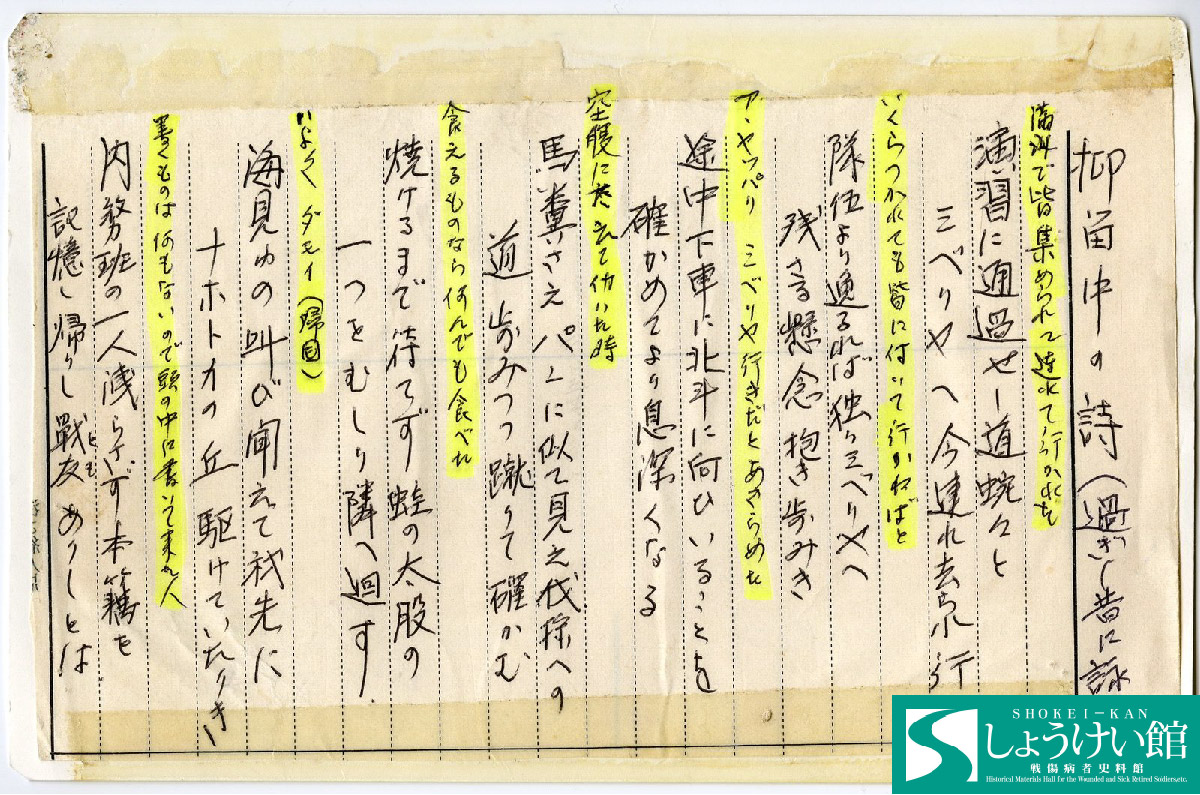 抑留中の詩(過ぎし昔に詠
満州で皆集められて連れて行かれた
演習に通過せし道蜿々と
シベリヤへ今連れ去られ行
いくらつかれても皆に付いて行かねばと
隊伍より遅るれば独りシベリヤへ
残さる懸念抱き歩みき
ア、ヤッパリ シベリヤ行きだとあきらめた
途中下車に北斗に向ひいることを
確かめてより息深くなる
空腹に耐えて働いた時
馬糞さえパンに似て見え伐採への
道歩みつつ蹴りて確かむ
食えるものなら何んでも食べた
焼けるまで待てず蛙の太股の
一つをむしり隣へ廻す
いよいよ ダモイ(帰国)
海見ゆの叫び聞えて我先に
ナホトカの丘駆けていたりき
書くものは何もないので頭の中に書いて来た人
内務班の一人洩らさず本籍を
記憶し帰りし戦友ありしとは
とも
SHOKEI-KAN
しょうけい館
戦傷病者史料館
Historical Materials Hall for the Wounded and Sick Retired Soldiers,etc.